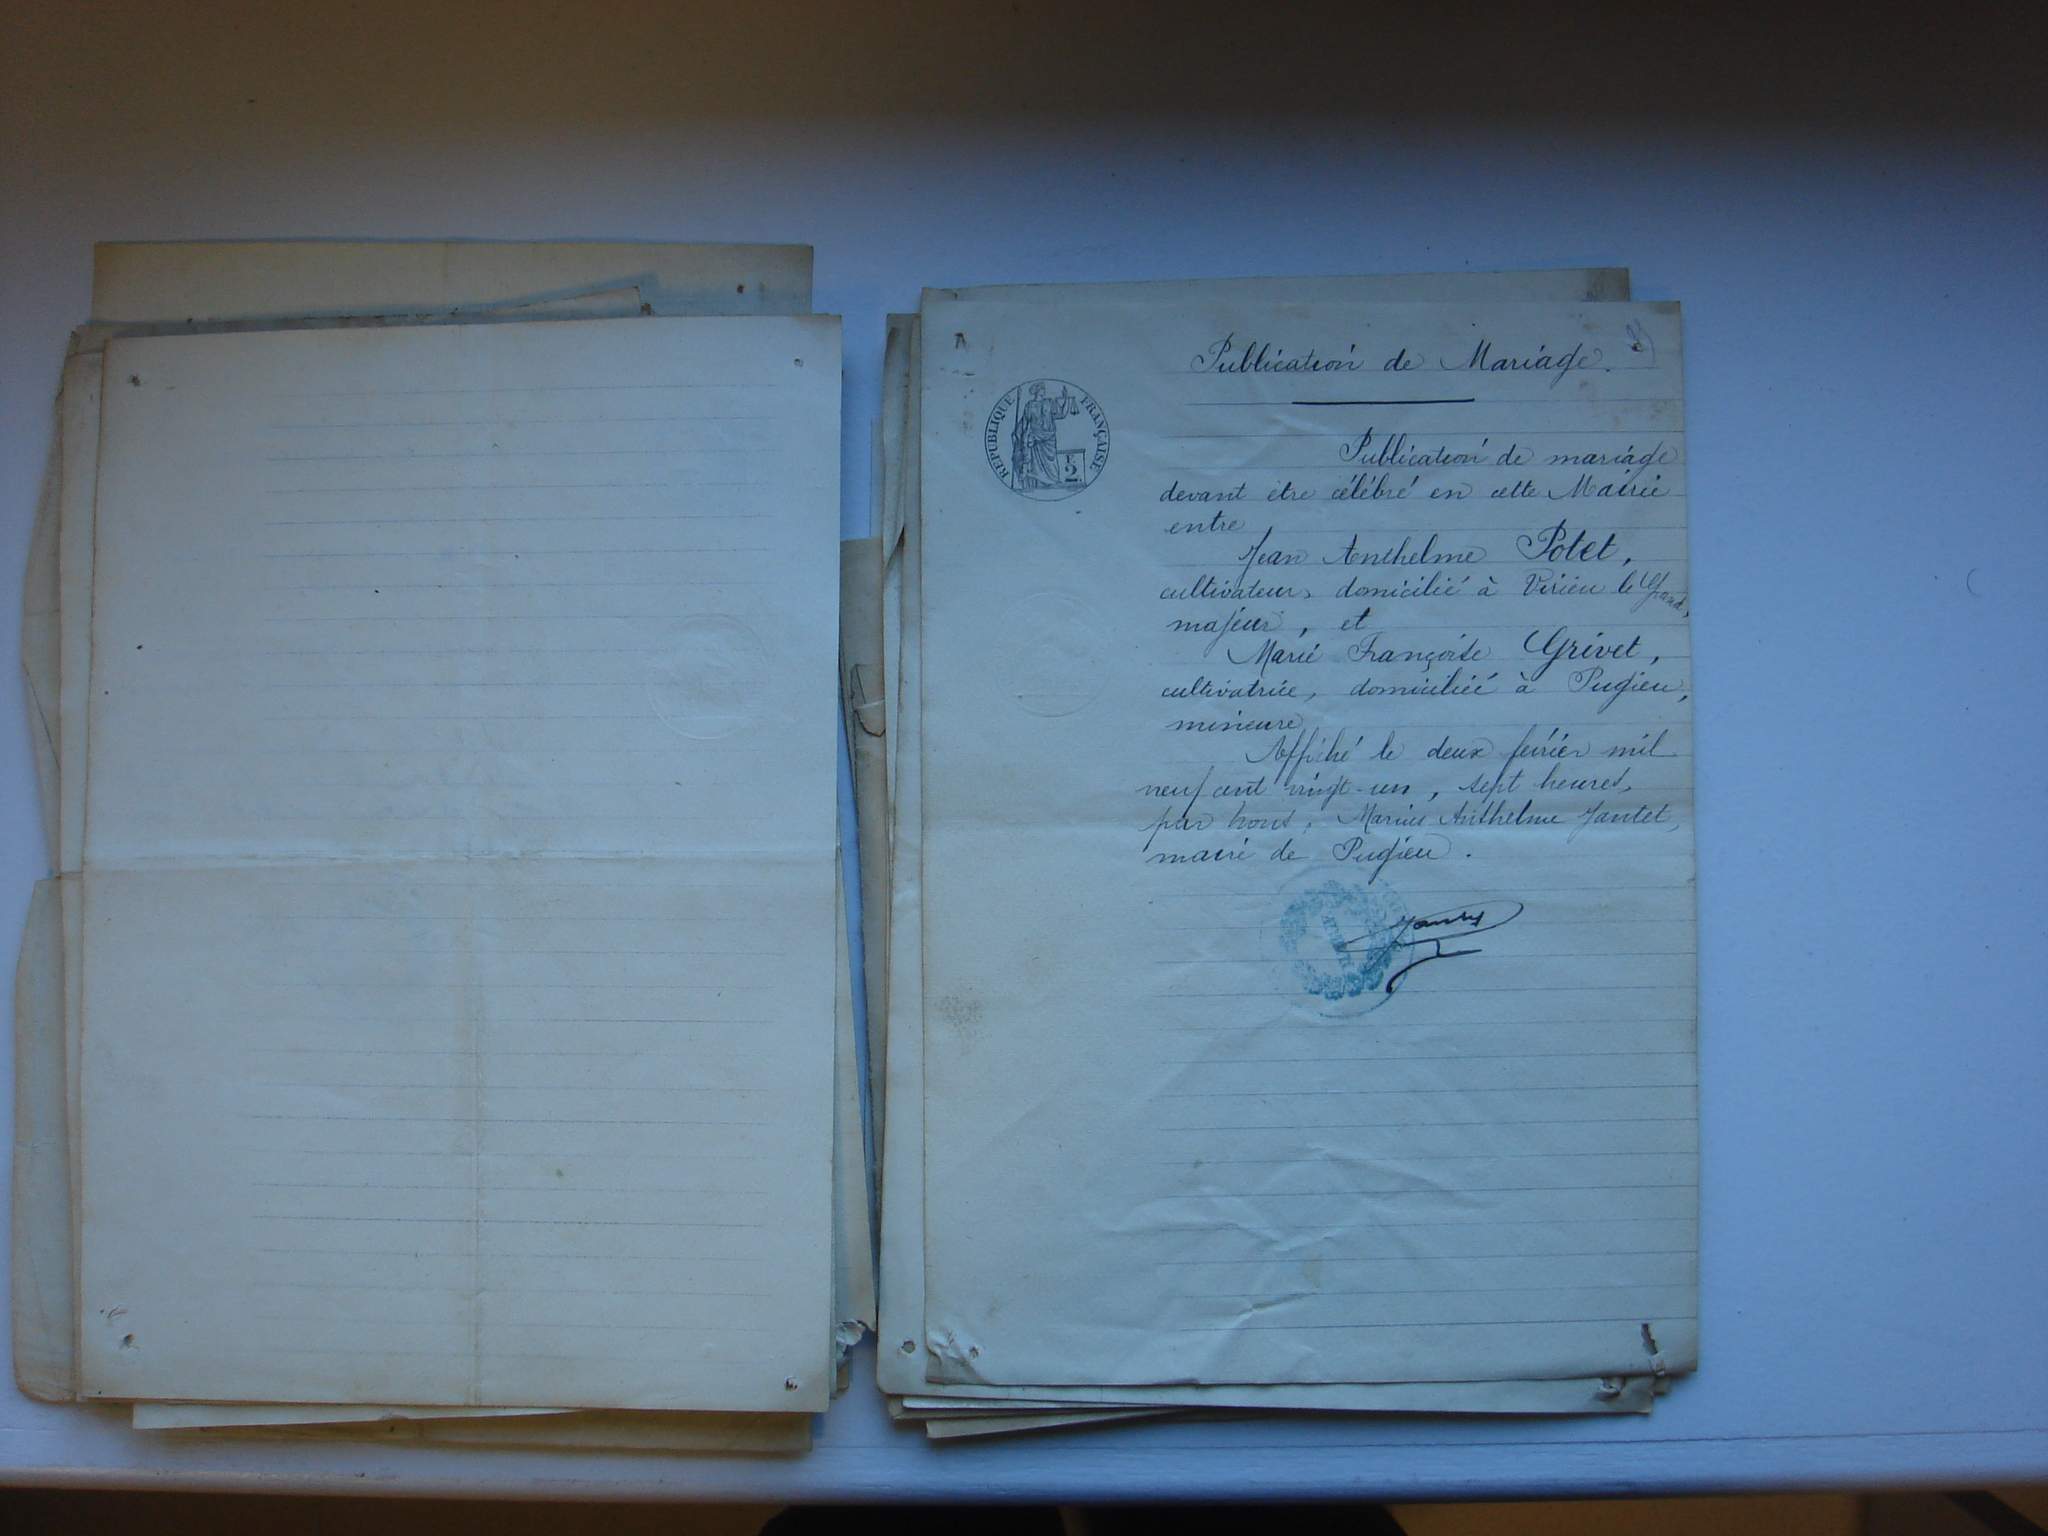 Publication de Mariage.
RÉPUBLIQUE FRANÇAISE
F.
2
Publication de mariage
devant être célébré en cette Mairie
entre
Jean Anthelme Potet,
cultivateur, domicilié à Virieu le Grand,
majeur, et
Marie Françoise Grivet,
cultivatrice, domiciliée à Pugieu,
mineure
Affiché le deux février mil
neuf cent vingt-un, sept heures,
par nous, Marius Anthelme Jantet,
maire de Pugieu.
MAIRIE